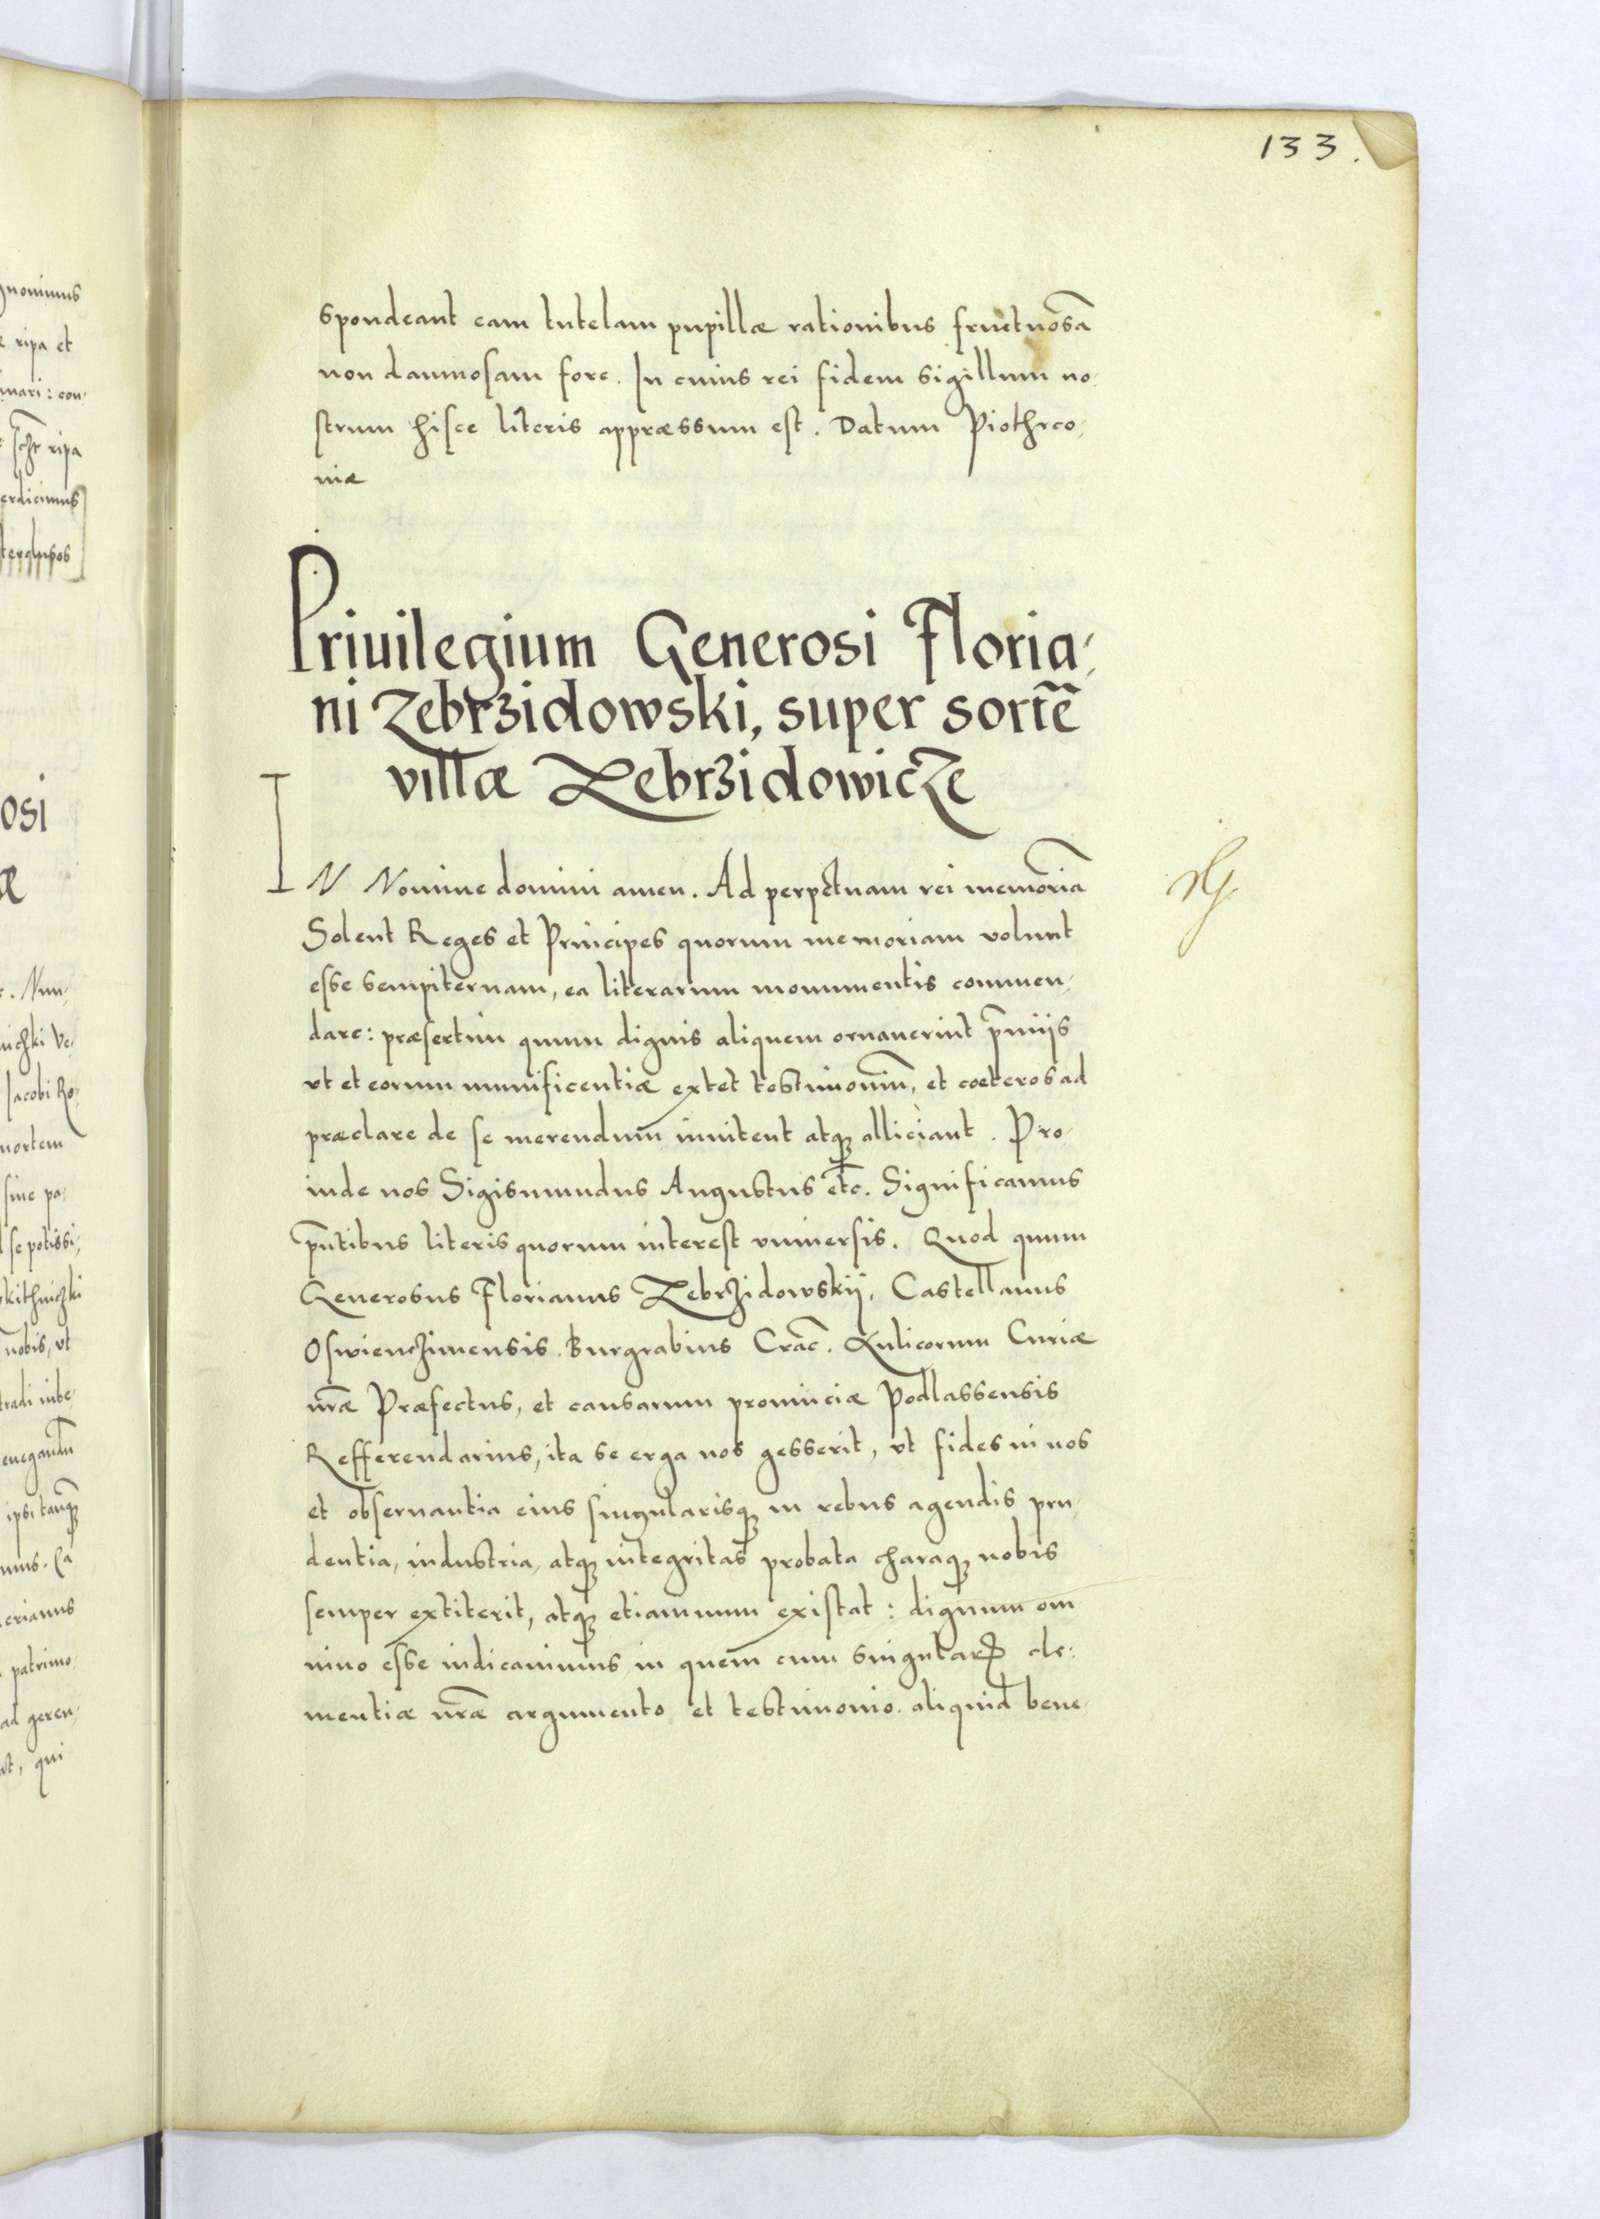 133.
spondeant eam tutelam pupillæ rationibus fructuosā
non damnosam fore. In cuius rei fidem sigillum no-
strum hisce literis appræssum est. Datum Piothrco-
niæ
Priuilegium Generosi Floria-
ni Zebrzidowski, super sortē
villæ Zebrzidowicze
IN Nomine domini amen. Ad perpetuam rei memoriā
Solent Reges et Principes quorum memoriam volunt
esse sempiternam, ea literarum monumentis commen-
dare: præsertim quum dignis aliquem ornauerint p̄mijs
vt et eorum munificentiæ extet testimoniū, et cœteros ad
præclare de se merendum inuitent atq̨ alliciant. Pro-
inde nos Sigismundus Augustus etc. Significamus
pn̄tibus literis quorum interest vniuersis. Quod quum
Generosus Florianus Zebrzidowskij, Castellanus
Oswienczimensis. Burgrabius Crac̄. Aulicorum Curiæ
nr̄æ Præfectus, et causarum prouinciæ Podlassensis
Refferendarius, ita se erga nos gesserit, vt fides in nos
et obseruantia eius singularisq̨ in rebus agendis pru-
dentia, industria, atq̨ integritas probata charaq̨ nobis
semper extiterit, atq̨ etiamnum existat: dignum om
nino esse iudicauimus in quem cum singularj cle-
mentiæ nr̄æ argumento et testimonio aliquid bene-
gnonimus
ripa et
con-
ripa
erdicimus
osi
æ
Nun-
Jacobi Ro-
mortem
siue pa-
se potissi-
nobis, vt
tradi iube-
ipsi tanq̨
patrimo-
ad geren-
qui